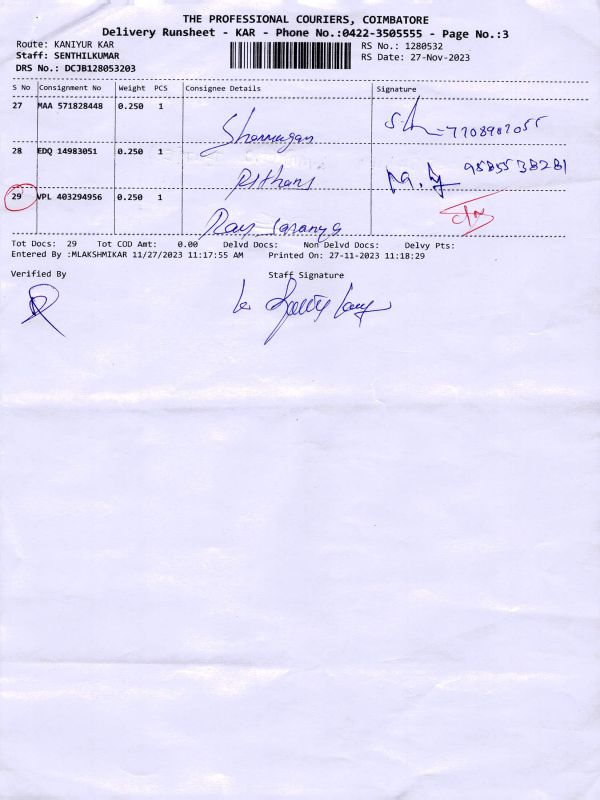 THE PROFESSIONAL COURIERS, COIMBATORE
Delivery Runsheet - KAR - Phone No.:0422-3505555 - Page No.:3
Route: KANIYUR KAR
RS No.: 1280532
Staff: SENTHILKUMAR
RS Date: 27-Nov-2023
DRS No.: DCJB128053203
S No Consignment No Weight PCS Consignee Details Signature
27 MAA 571828448 0.250 1
Shanmugam 7708987055
28 EDQ 14983051 0.250 1
9585538281
29 VPL 403294956 0.250 1
Tot Docs: 29 Tot COD Amt: 0.00 Delvd Docs: Non Delvd Docs: Delvy Pts:
Entered By :MLAKSHMIKAR 11/27/2023 11:17:55 AM Printed On: 27-11-2023 11:18:29
Verified By Staff Signature